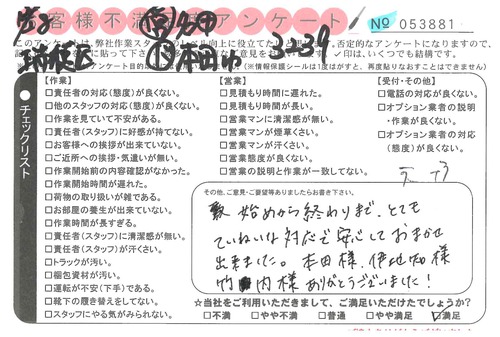 お客様不満足アンケート
№ 053881
このアンケートは、弊社作業スタッフのレベル向上に役立てたいと
3-39
(※情報保護シールは1度はがすと、再度貼りなおすことはできません)
チェックリスト
【作業】
□責任者の対応(態度)が良くない。
□他のスタッフの対応(態度)が良くない。
□作業を見ていて不安がある。
□責任者(スタッフ)に好感が持てない。
□お客様への挨拶が出来ていない。
□ご近所への挨拶・気遣いが無い。
□作業開始前の内容確認がなかった。
□作業開始時間が遅れた。
□荷物の取り扱いが雑である。
□お部屋の養生が出来ていない。
□作業時間が長すぎる。
□責任者(スタッフ)に清潔感が無い。
□責任者(スタッフ)が汗くさい。
□トラックが汚い。
□梱包資材が汚い。
□運転が不安(下手)である。
□靴下の履き替えをしてない。
□スタッフにやる気がみられない。
【営業】
□見積もり時間に遅れた。
□見積もり時間が長い。
□営業マンに清潔感が無い。
□営業マンが煙草くさい。
□営業マンが汗くさい。
□営業態度が良くない。
□営業の説明と作業が一致してない。
【受付・その他】
□電話の対応が良くない。
□オプション業者の説明
・作業が良くない。
□オプション業者の対応
(態度)が良くない。
その他、ご意見・ご要望等ありましたらお書き下さい。
始めから終わりまで、とても
ていねいな対応で安心しておまかせ
出来ました。本田様、伊地知様
竹内様ありがとうございました!
☆当社をご利用いただきまして、ご満足いただけたでしょうか?
□不満 □やや不満 □普通 □やや満足 ☑満足